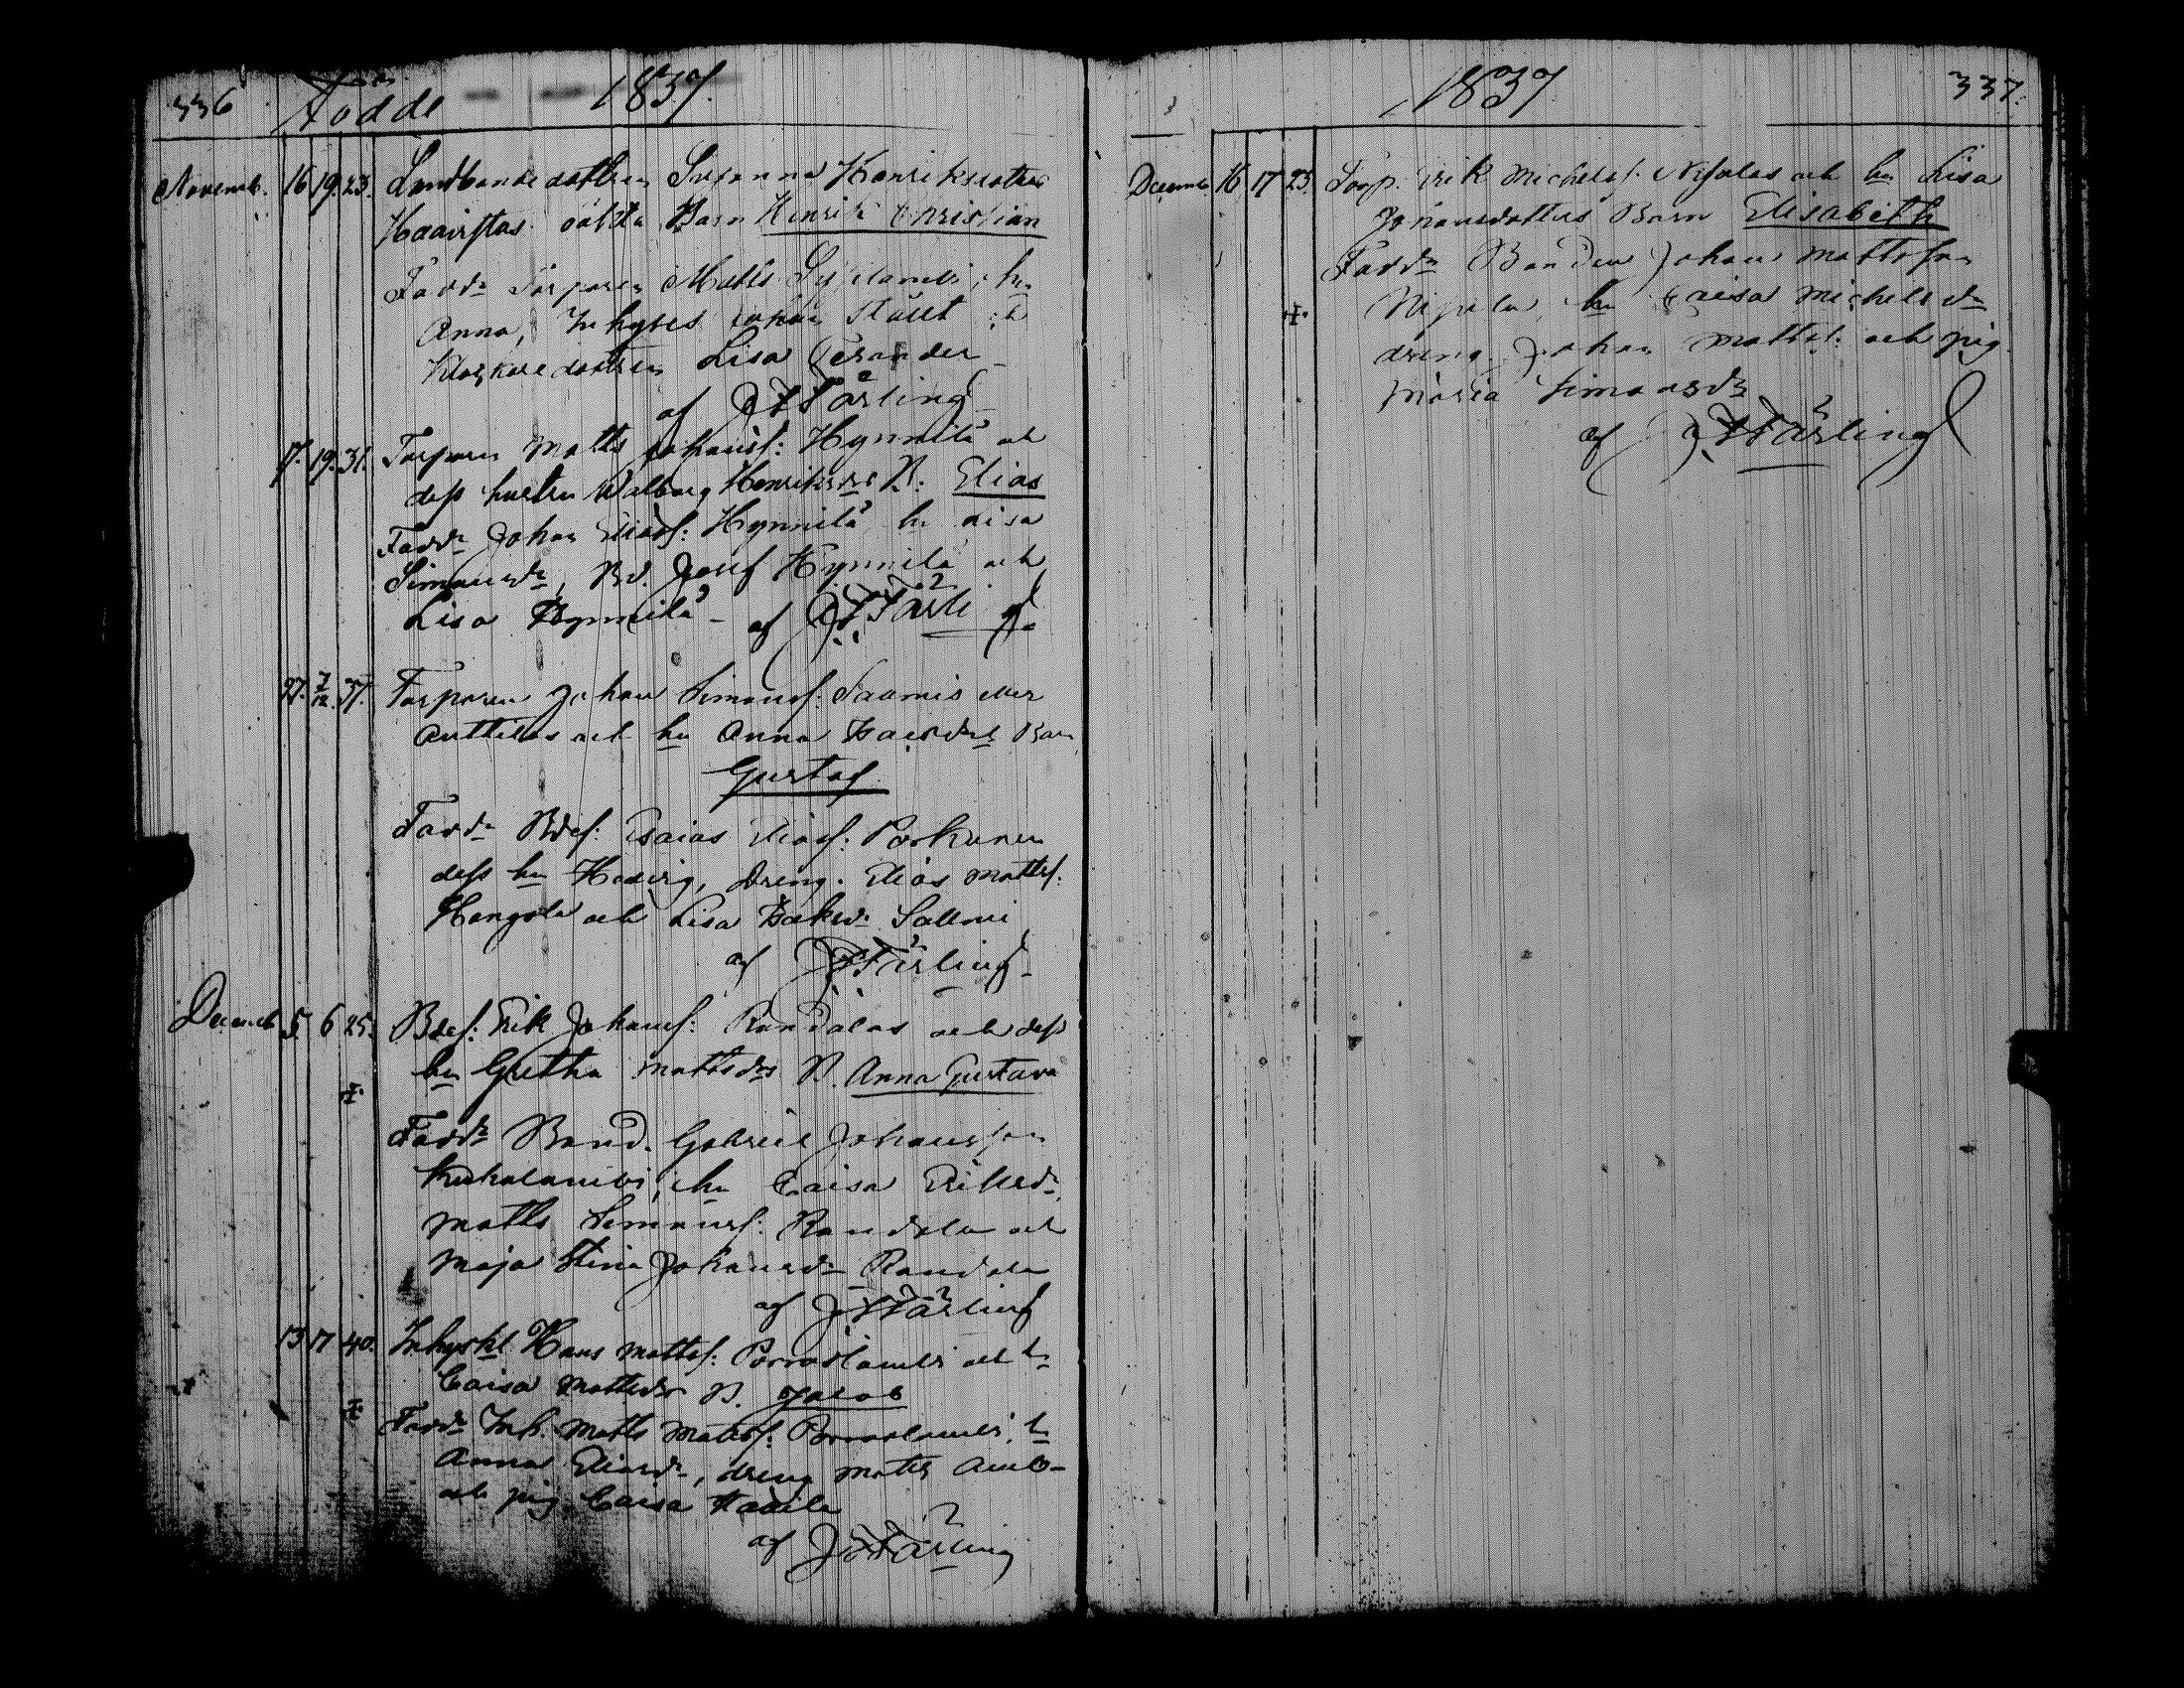 336 Födde 1837.
Novemb. 16 19. 23. Landbonde dottren Susanna Henriksdotters
Haavistas oäkta Barn Henrik Christian
Faddr Torparen Matts hu
Anna, Inhyses Johan
Klockaredottren Lisa Terander
af J F Färling
17. 19. 31. Torparen Matts Johanss: Hynnilä och
dess hustru Walborg Henriksdrs B: Elias
Faddr Johan Eliass: Hynnilä hu Lisa
Simonsdr, Bd. Josef Hynnilä och
Lisa Hynnilä af J F Färling
27. 3/12. 37. Torparen Johan Simonss: Saumis eller
Anttilas och hu Anna Isacsdrs Barn
Gustaf
Faddr Bdes: Esaias Eliass: Porkanen
dess hu Hedvig, Dreng. Elias Mattss:
och Lisa Isaksdr Sallmi
af J F Färling
Decemb. 5. 6 25. Bdes: Erik Johanss: Randalas och dess
hu Gretha Mattsdrs B. Anna Gustava
Faddr Bond. Gabriel Johansson
hu Caisa Eriksdr,
Matts Simonss: Randala och
Maja Stina Johansdr Randala
af J F Färling
13 17 40. Inhyskl Hans Mattss: Porraslambi och hu
Caisa Mattsdrs B. Jacob
Faddr Inh. Matts Mattss: Porraslambi, hu
Anna Eliasdr, dreng Matts
och pig. Caisa
af J F Färling
1837 337.
Decemb. 16 17 23. Torp. Erik Michelss: Nipalas och hu Lisa
Johansdotters Barn Elisabeth
Faddr Bonden Johan Mattsson
Nipala, hu Caisa Michelsdr
dreng. Johan Mattss: och pig.
Maria Simonsdr
af J F Färling